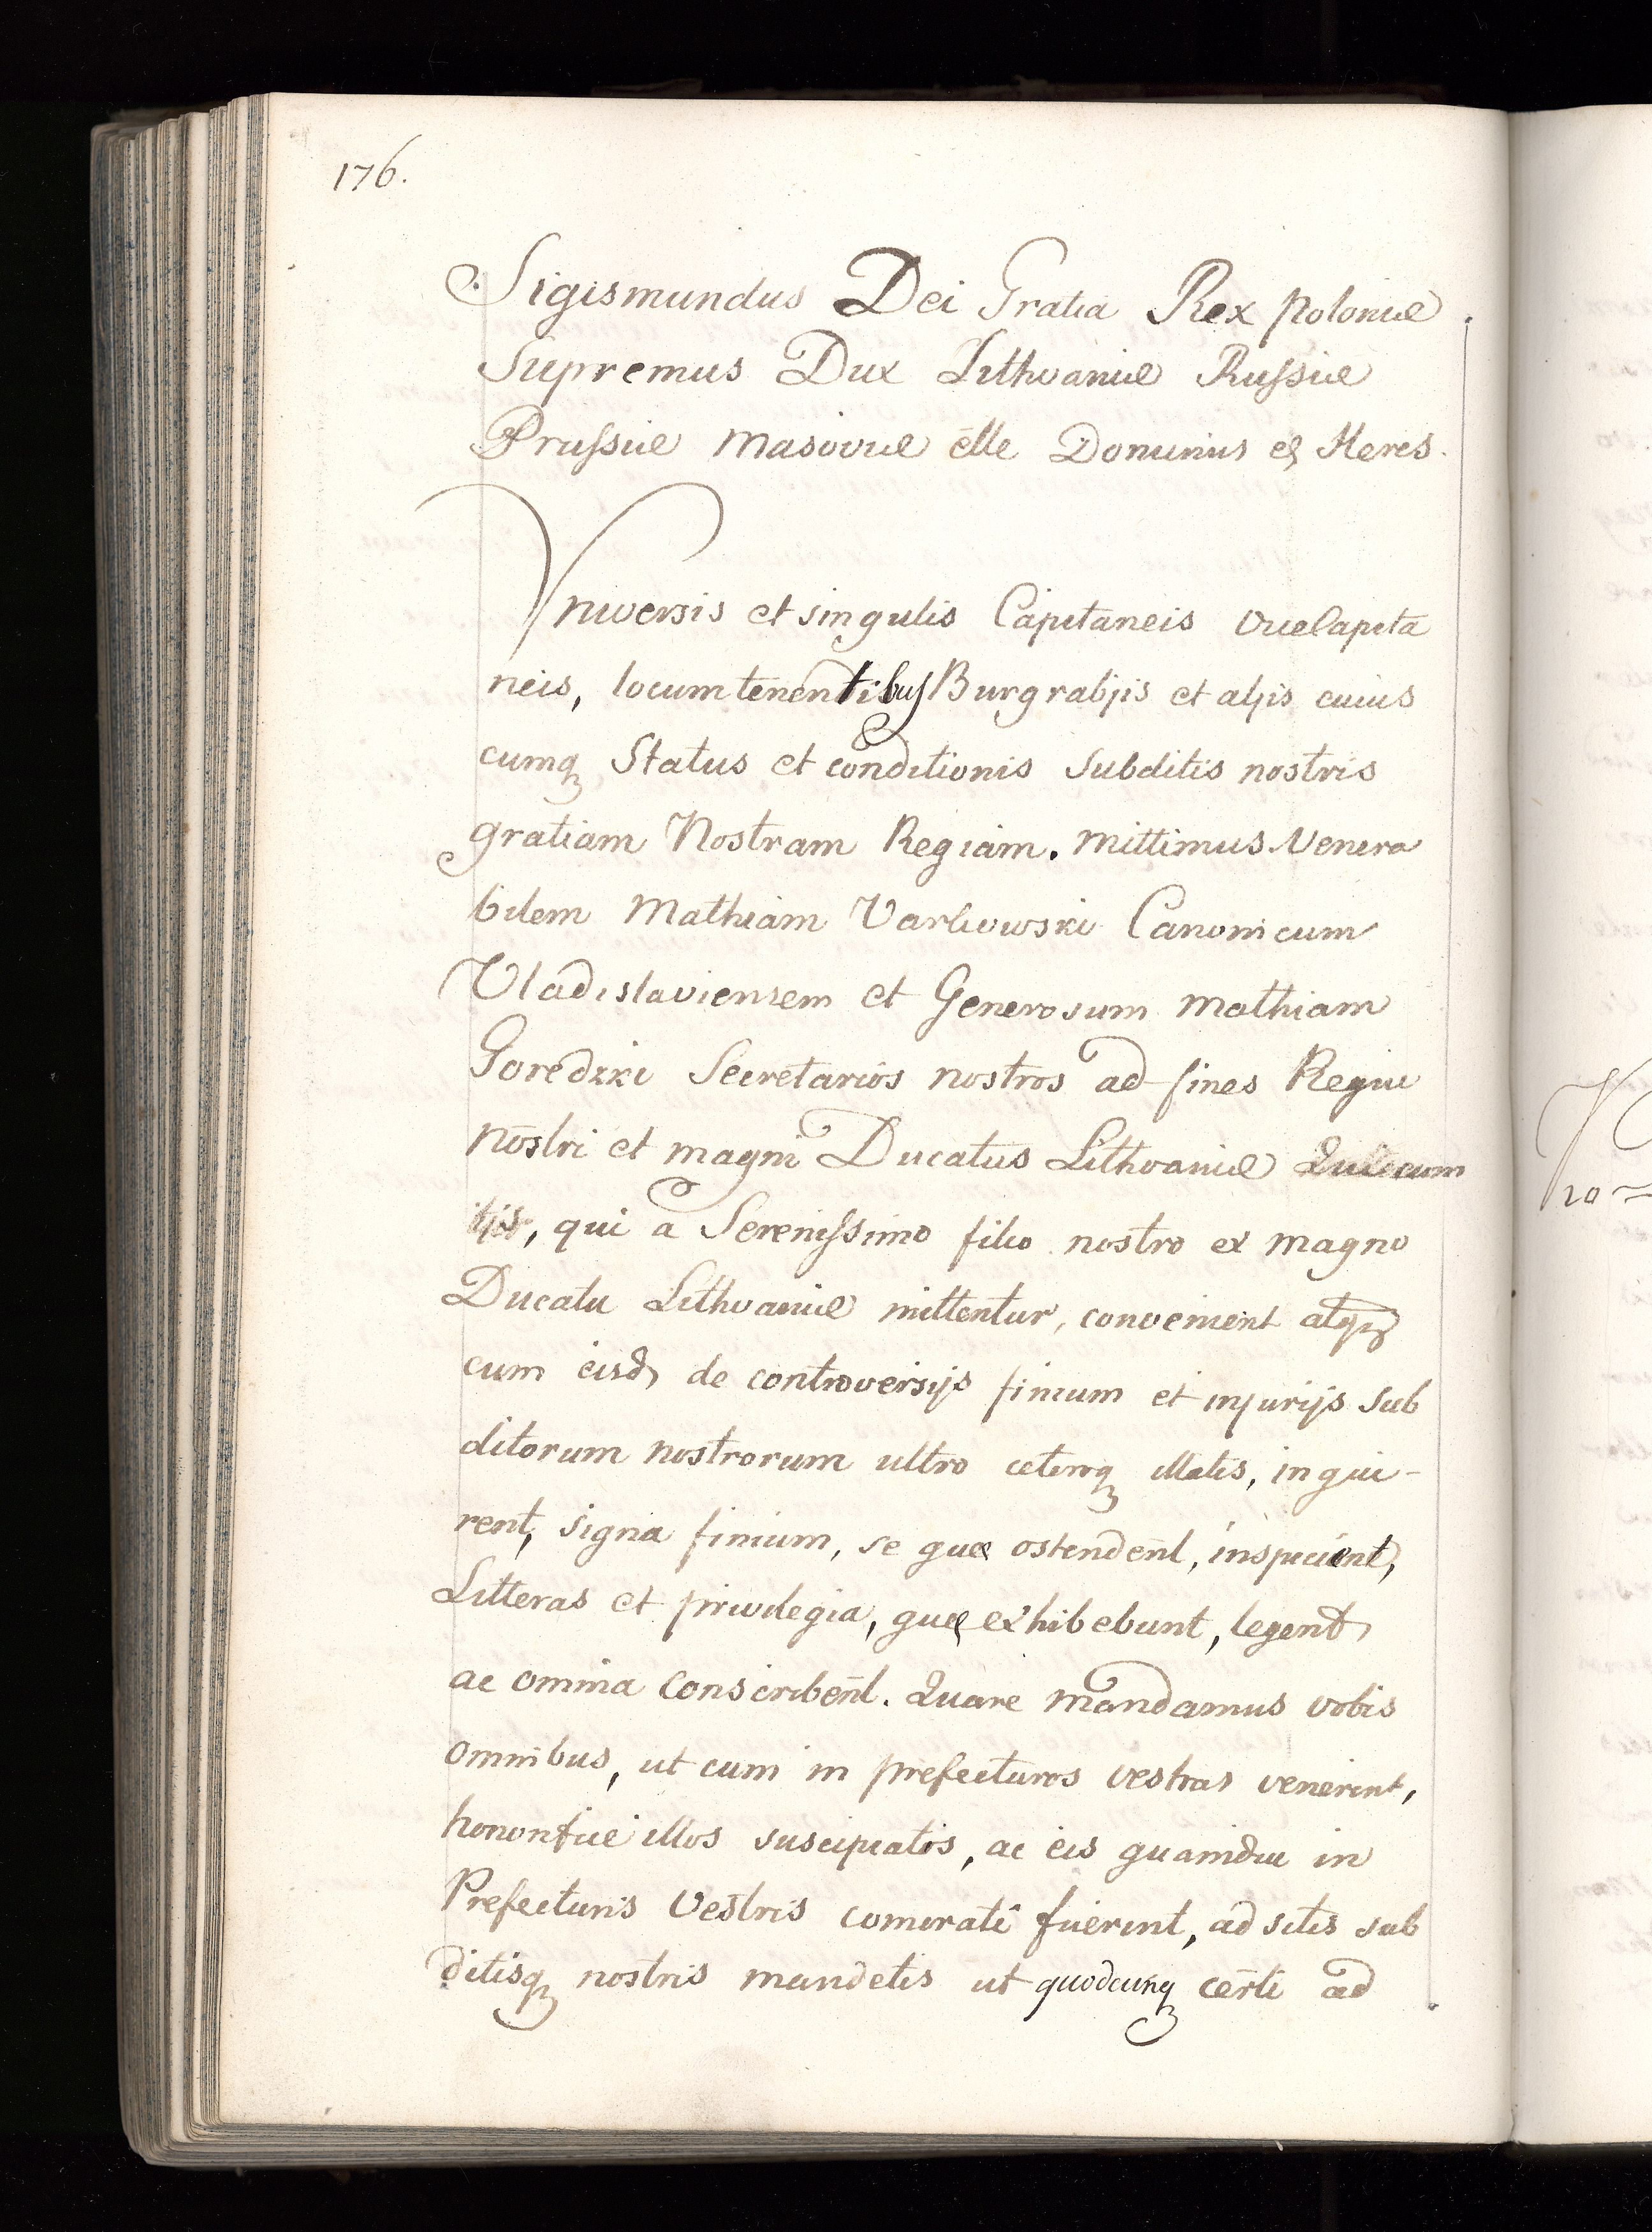 176.
Sigismundus Dei Gratia Rex Poloniæ
Supremus Dux Lithvaniæ Russiæ
Prussiæ Masoviæ etté Dominus et Heres.
Vniversis et singulis Capitaneis vicecapita
neis, locumtenentibus Burgrabijs et alijs cuius
cumq Status et conditionis subditis nostris
gratiam Nostram Regiam. Mittimus Venera
bilem Mathiam Canonicum
Vladislaviensem et Generosum Mathiam
Goredzki Secretarios nostros ad fines Regni
nostri et magni Ducatus Lithvaniæ
, qui a Serenissimo filio nostro ex magno
Ducatu Lithvaniæ mittentur, convenient atqz
cum eisd de controversijs finium et injurijs sub
ditorum nostrorum ultro citroqz illatis, inqui-
rent, signa finium, se quæ ostendent, inspicient,
Litteras et privilegia, quæ exhibebunt, legent
ac omnia conscribent. Quare mandamus vobis
omnibus, ut cum in prefecturas vestras venerint,
honorifice illos suscipiatis, ac eis quamdiu in
Prefecturis Vestris comorati fuerint, ad sitis sub
ditisqz nostris mandetis ut quodcunqz certi ad